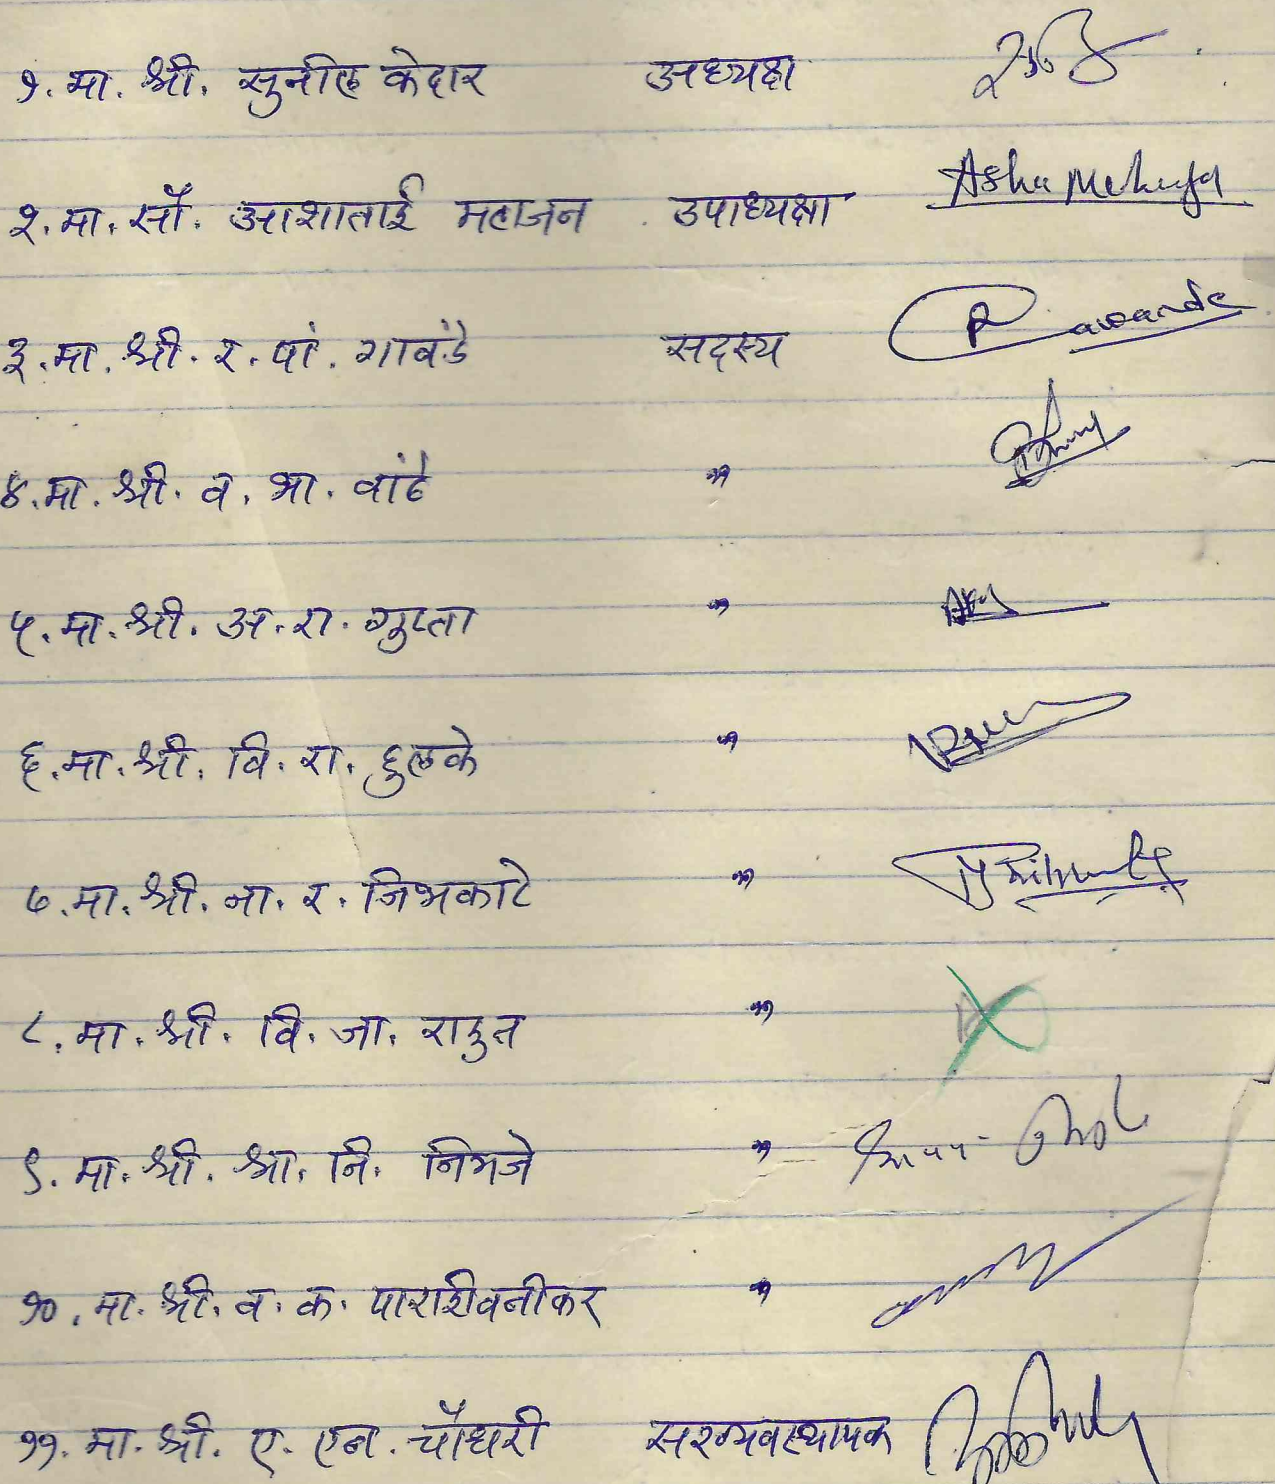 १. मा. श्री. सुनील केदार अध्यक्ष
२. मा. सौ. आशाताई महाजन उपाध्यक्षा Asha
३. मा. श्री. र. पां. गावंडे सदस्य
४. मा. श्री. व. भा. वांढे "
५. मा. श्री. अ. रा. गुप्ता "
६. मा. श्री. वि. रा. हुलके "
७. मा. श्री. ना. र. जिभकाटे "
८. मा. श्री. वि. जा. राऊत "
९. मा. श्री. श्रा. नि. निमजे "
१०. मा. श्री. व. क. पारशिवनीकर "
११. मा. श्री. ए. एन. चौधरी सरव्यवस्थापक